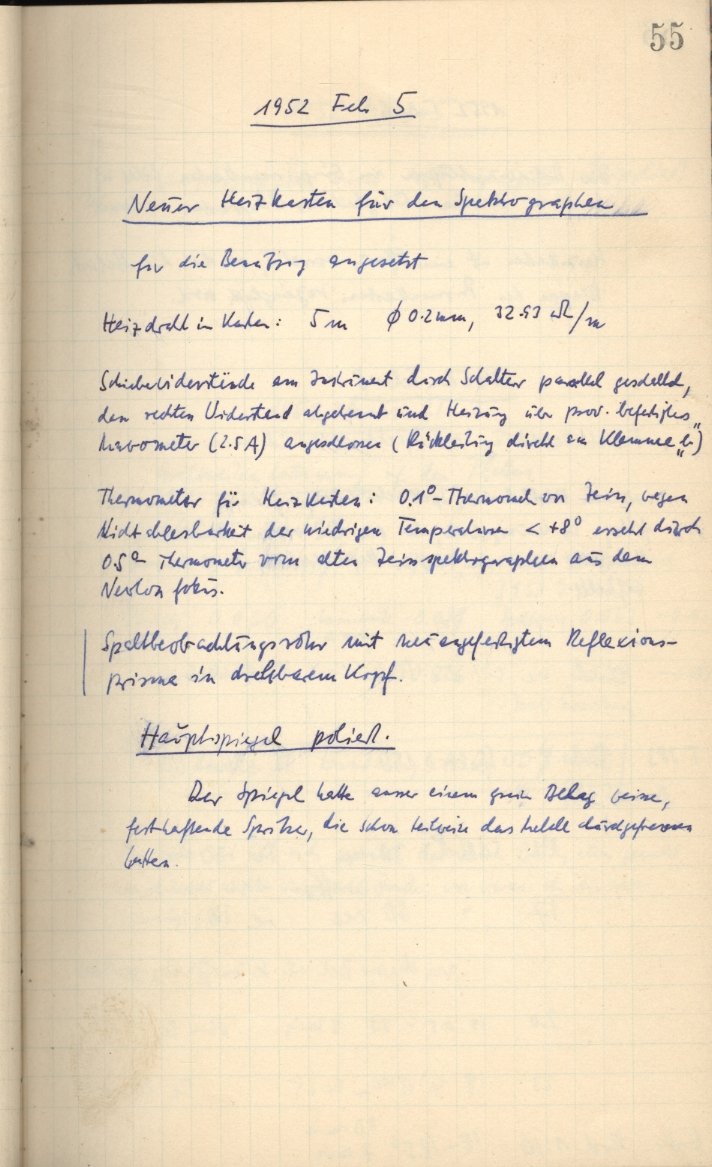 55
1952 Feb. 5
Neuer Heizkasten für den Spektrographen
für die Benützung angesetzt
Heizdraht in Kasten: 5 m ϕ 0.2 mm, 32.93 Ω/m
Schiebewiderstände am Instrument durch Schalter parallel gestellt,
den rechten Widerstand abgetrennt und Heizung über prov. befestigtes
(2.5 A) angeschlossen (Rückleitung direkt an Klemme „b")
Thermometer für Heizkasten: 0.1°-Thermom. von Zeiss, wegen
Nichtablesbarkeit der niedrigen Temperaturen < +8° ersetzt durch
0.5° Thermometer vom alten Zeissspektrographen aus dem
Newton fokus.
Spaltbeobachtungsrohr mit neuangefertigtem Reflexions-
prisma in drehbarem Kopf.
Hauptspiegel poliert.
Der Spiegel hatte ausser einem Belag weisse,
festhaftende Spritzer, die schon teilweise das durchgefressen
hatten.